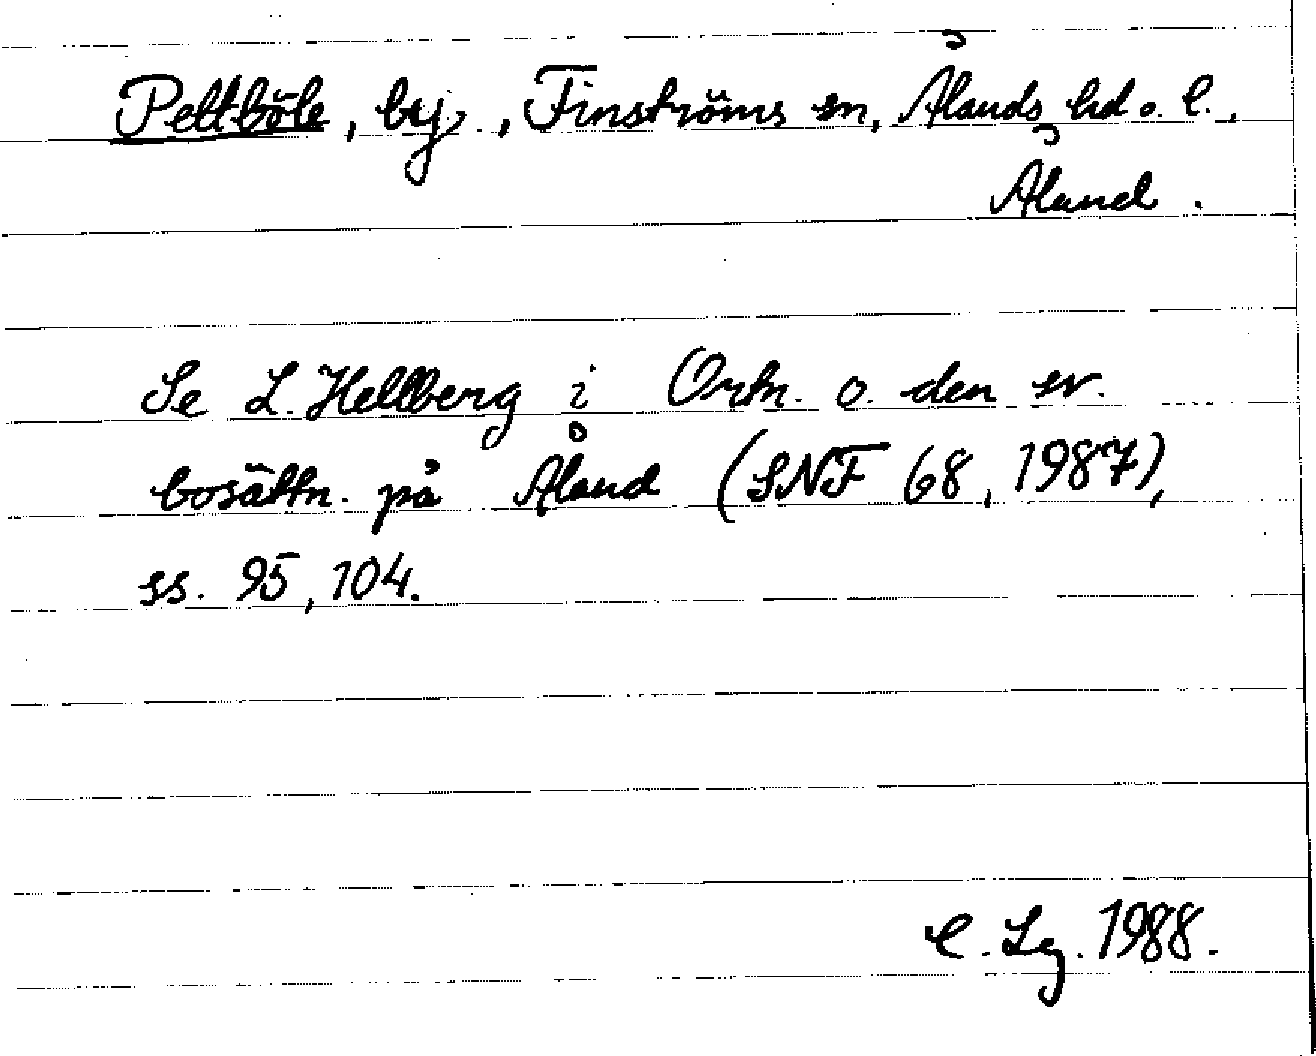 Pettböle, by, Finströms sn, Ålands hd o. l.,
Åland.
Se L. Hellberg i Ortn. o. den sv.
bosättn. på Åland (SNF 68, 1987),
ss. 95, 104.
C. Lg. 1988.